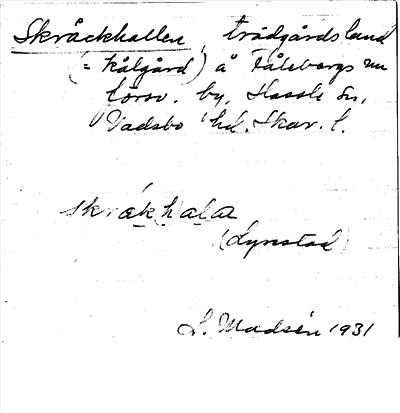 Skråckhallen, trädgårdsland
(= kålgård) å Fåleborgs
by, Hassle Sn,
Vadsbo hd. Skar. l.
skråk(h)ala
(Lynstad)
L. Madsén 1931